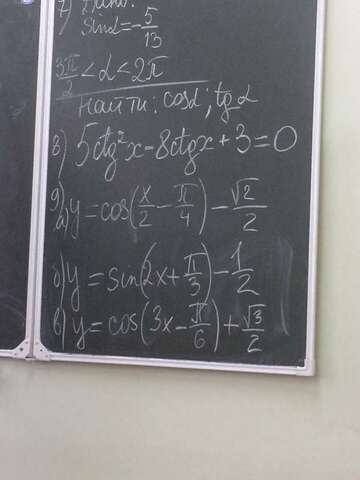 7) Дано:
sinα = -5/13
3π/2 < α < 2π
Найти: cosα; tgα
8) 5ctg²x - 8ctgx + 3 = 0
9) а) y = cos(x/2 - π/4) - √2/2
б) y = sin(2x + π/3) - 1/2
в) y = cos(3x - π/6) + √3/2